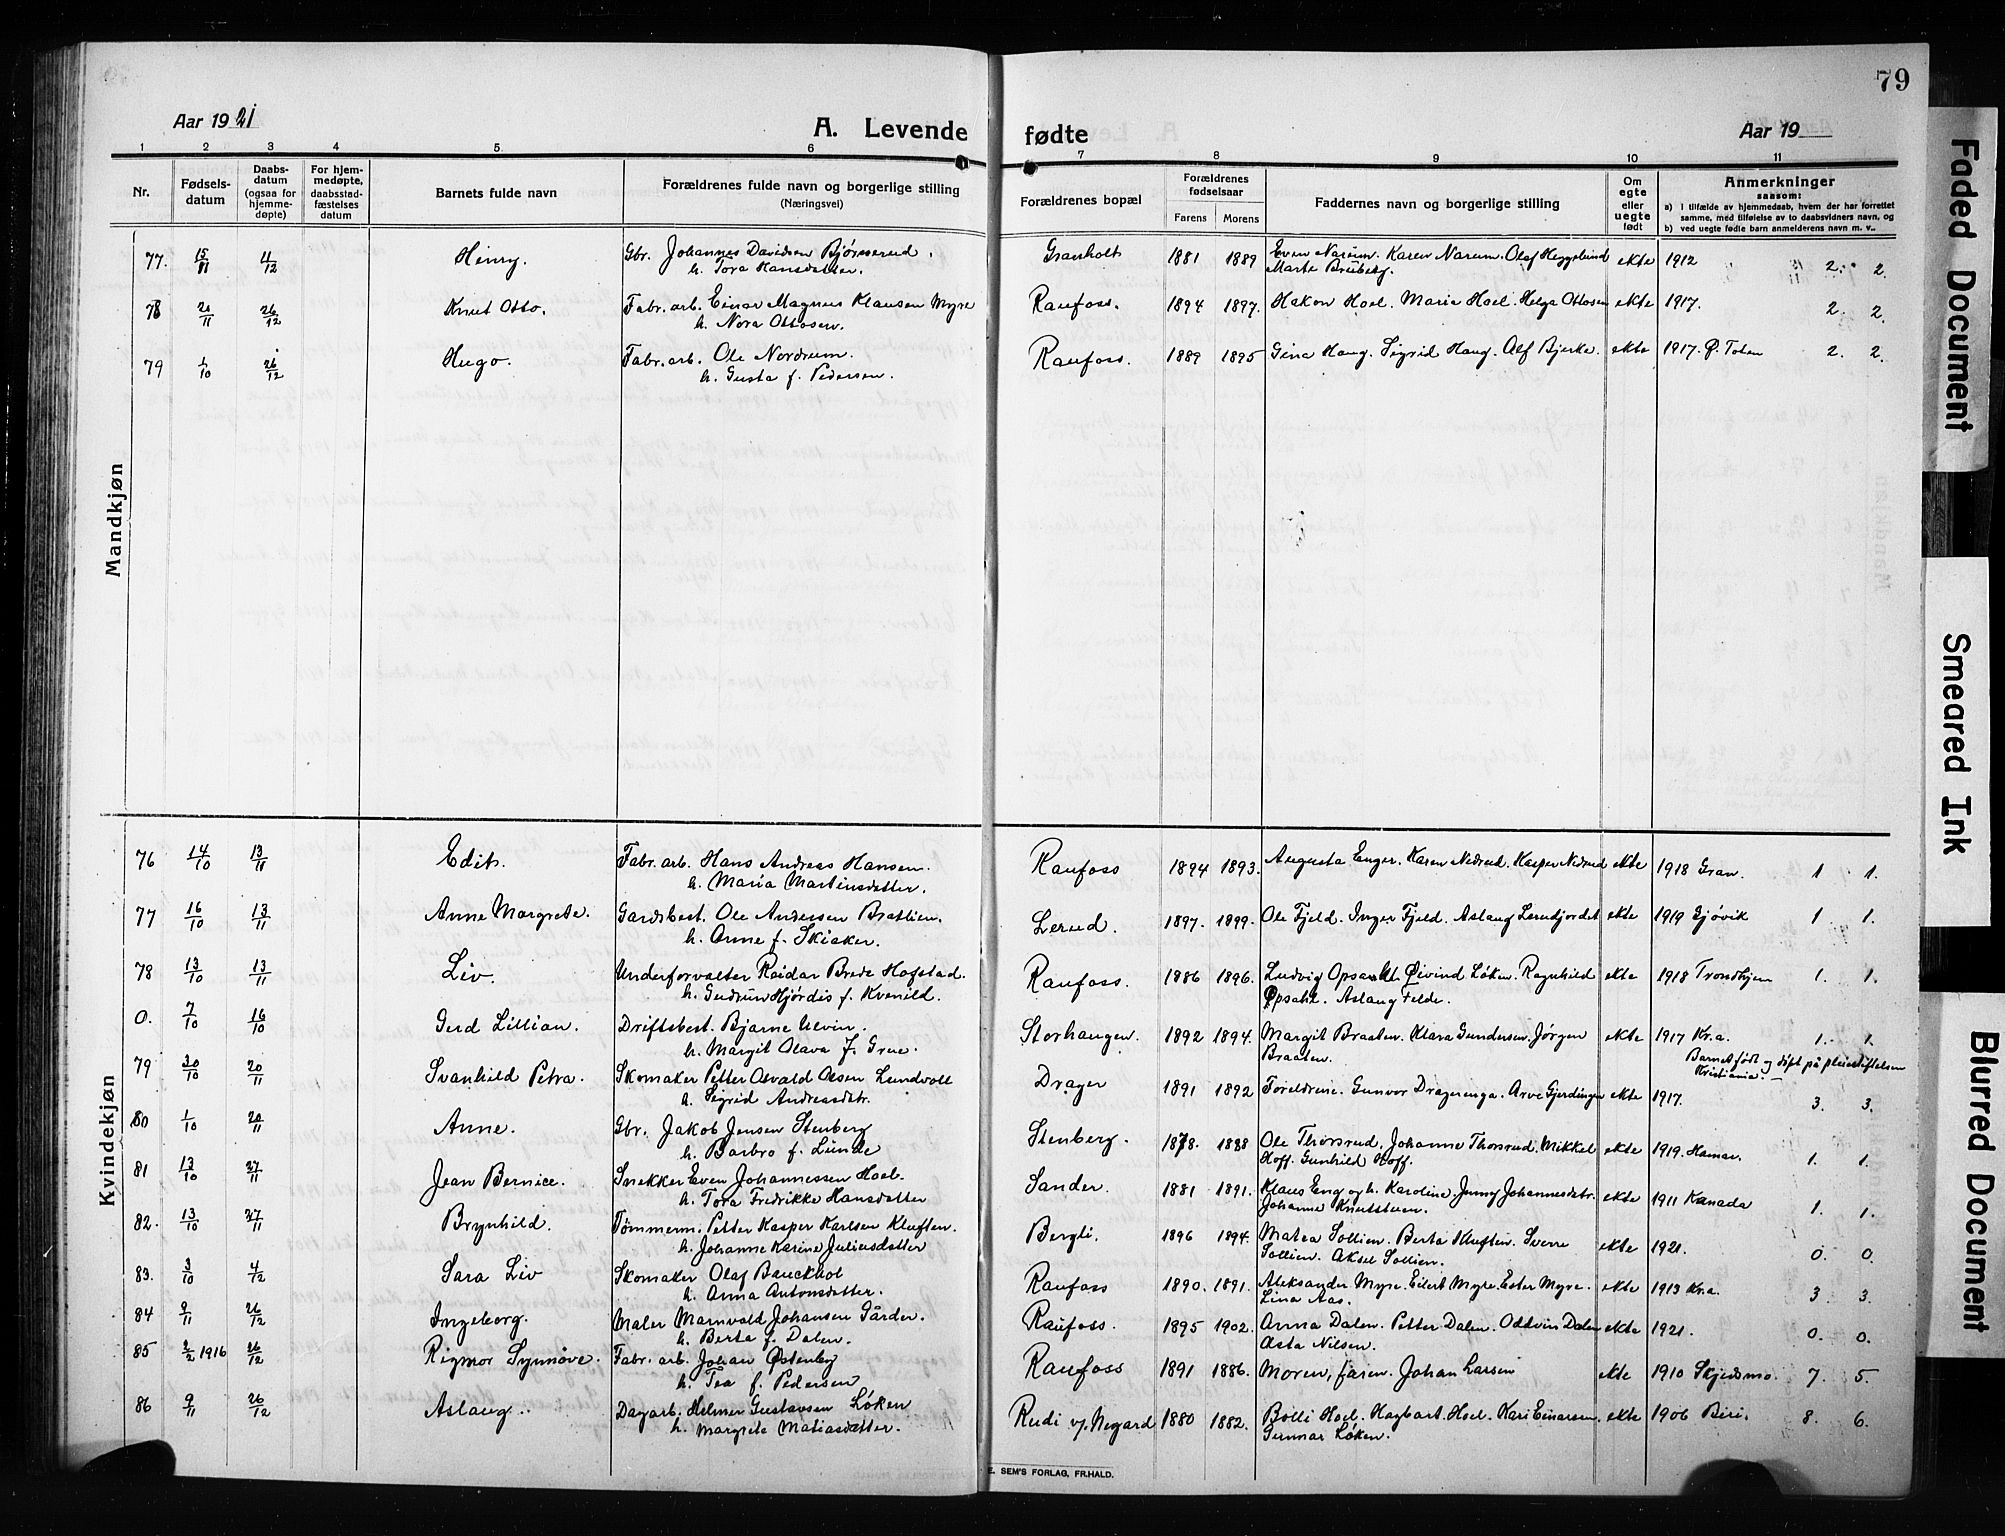 79
Aar 1921
A. Levende fødte
Aar 19
1 2 3 4 5 6 7 8 9 10 11
Nr.
Fødsels-datum
Daabs-datum (ogsaa for hjemme-døpte)
For hjem-medøpte, daabsstad-fæstelses datum
Barnets fulde navn
Forældrenes fulde navn og borgerlige stilling
(Næringsvei)
Forældrenes bopæl
Forældrenes fødselsaar
Farens Morens
Faddernes navn og borgerlige stilling
Om egte eller uegte født
Anmerkninger
saasom:
a) I tilfælde av hjemmedaab, hvem der har forrettet
samme, med tilføielse av to daabsvidners navn, og
b) ved uegte fødte barn anmelderens navn m. v.
Mandkjøn
77. 15/11 11/12 Henry. Gbr. Johannes Davidsen Granholt 1881 1889 Even Narum. Karen Narum. Olaf ekte 1912 2. 2.
h. Tora Hansdatter. Marte
78 2/11 26/12 Knut Otto. Fabr. arb. Einar Magnus Klausen Myre Raufoss. 1894 1897. Hakon Hoel. Maria Hoel. Helga Ottosen ekte 1917. 2. 2.
h. Nora Ottosen.
79 1/10 26/12 Hugo. Fabr. arb. Ole Nordrum. Raufoss. 1889 1895 Gina Haug. Sigrid Haug. Alf Bjerke. ekte 1917. Ø. Toten 2. 2.
h. Gusta f. Pedersen.
Kvindekjøn
76 14/10 13/11 Edit. Fabr. arb. Hans Andreas Hansen. Raufoss 1894 1893. Augusta Enger. Karen Nedrud. Kasper Nedrud ekte 1918 Gran. 1 1.
h. Maria Martinsdatter.
77 16/10 13/11 Anne Margrete. Gardsbest. Ole Andersen Bratlien. Lerud. 1897. 1899. Ole Fjeld. Inger Fjeld. Aslaug Lerudjordet ekte 1919 Gjøvik 1 1.
h. Anne f. Skiaker.
78 13/10 13/11 Liv. Underforvalter Reidar Brede Hofstad. Raufoss. 1886 1896. Ludvig Opsahl. Øivind Løken. Ragnhild ekte 1918 Trondhjem 1. 1.
h. Gudrun Hjørdis f. Kvenild. Opsahl. Aslaug Felde.
0. 7/10 16/10 Gerd Lillian. Driftsbest. Bjarne Ulvin. Storhaugen. 1892 1894. Margit Braaten. Klara Gundersen. Jørgen ekte 1917 Kr.a. 1. 1.
h. Margit Olava f. Grue. Braaten. Barnet født og døpt på pleiestiftelsen
Kristiania.
79 30/10 20/11 Svanhild Petra. Skomaker Petter Osvald Olsen Lundvoll Drager 1891 1892 Foreldrene. Gunvor Dragerenga. Arve Gjerdingen ekte 1917. 3. 3.
h. Sigrid Andreasdtr.
80 1/10 20/11 Anne. Gbr. Jakob Jensen Stenberg Stenberg. 1878. 1888 Ole Thorsrud, Johanne Thorsrud. Mikkel ekte 1919. Hamar. 1. 1.
h. Barbro f. Lunde Hoff. Gunhild Hoff.
81 13/10 27/11 Jean Bernice. Snekker Even Johannessen Hoel. Sander. 1881 1891. Klaus Eng og h. Karoline. Jenny Johannesdtr. ekte 1911 Kanada 1. 1.
h. Tora Fredrikke Hansdatter Johanne Knutstuen.
82. 13/10 27/11 Brynhild. Tømmerm. Petter Kasper Karlsen Kluften. Bergli. 1896 1894. Matea Sollien. Berta Kluften. Sverre ekte 1921. 0. 0.
h. Johanne Karine Juliusdatter Sollien. Aksel Sollien.
83. 3/10 4/12 Sara Liv Skomaker Olaf Bauckhol Raufoss 1890. 1891. Aleksander Myre. Eilert Myre. Ester Myre. ekte 1913 Kr.a. 3. 3.
h. Anna Antonsdatter. Lina Aas.
84 9/11 26/12 Ingeborg. Maler Marnvald Johansen Gården. Raufoss. 1895 1902. Anna Dalen. Petter Dalen. Oddvin Dalen ekte 1921. 0. 0.
h. Berta f. Dalen. Asta Nilsen.
85 2/2 1916 26/12 Rigmor Synnøve. Fabr. arb. Johan Østenby Raufoss 1891 1886. Moren, faren. Johan Larsen ekte 1910 Skjedsmo. 7. 5.
h. Tea f. Pedersen
86 9/11 26/12 Aslaug. Dagarb. Helmer Gustavsen Løken Rudi v/ Negard 1880 1882. Bolli Hoel. Hagbart Hoel. Kari Einarsen. ekte 1906 Biri. 8. 6.
h. Margrete Matiasdatter. Gunnar Løken.
E. SEM'S FORLAG, FR.HALD.
Faded Document
Smeared Ink
Blurred Document